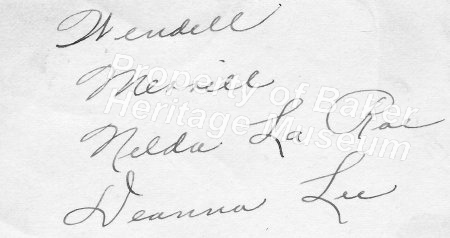 Wendell
Merrill
Property of Baker
Heritage Museum
Nelda La Rae
Deanna Lee